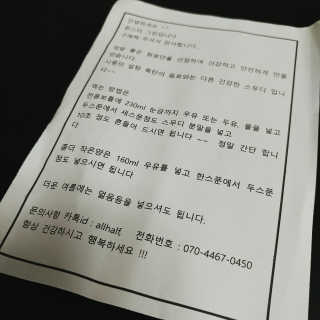 안녕하세요 ^^
한스의 그린입니다
구매해 주셔서 감사합니다.
정말 좋은 원료만을 선정하여 건강하고 안전하게 만들
었습니다.
시중의 설탕 폭탄의 음료와는 다른 건강한 스무디 입니
다~~
먹는 방법은
전용보틀에 230ml 눈금까지 우유 또는 두유, 물을 넣고
두스푼에서 세스푼정도 스무디 분말을 넣고
10초 정도 흔들어 드시면 됩니다 ~~ 정말 간단 합니
다
좀더 작은양은 160ml 우유를 넣고 한스푼에서 두스푼
정도 넣으시면 됩니다
더운 여름에는 얼음등을 넣으셔도 됩니다.
문의사항 카톡id : allhalf, 전화번호 : 070-4467-0450
항상 건강하시고 행복하세요 !!!